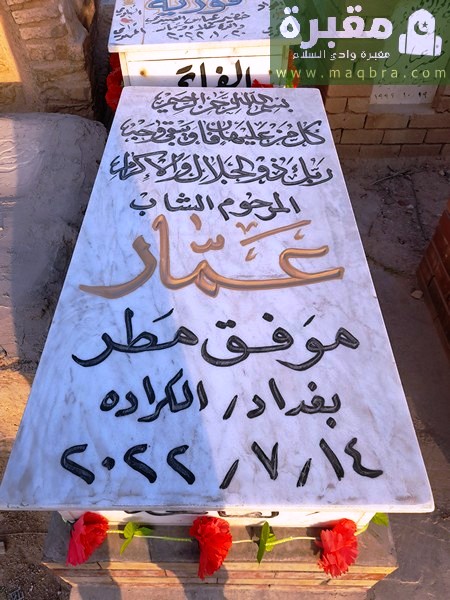 مقبرة
مقبرة وادي السلام
www.maqbra.com
٢٠٢٢
الفاتحة
بسم الله الرحمن الرحيم
كل من عليها فان ويبقى وجه
ربك ذو الجلال والاكرام
المرحوم الشاب
عمّار
موفق مطر
بغداد / الكراده
٢٠٢٢/٧/١٤